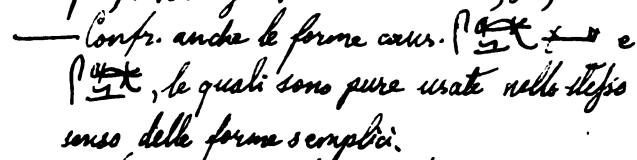 — Confr. anche le forme caus. e
, le quali sono pure usate nello stesso
senso delle forme semplici.